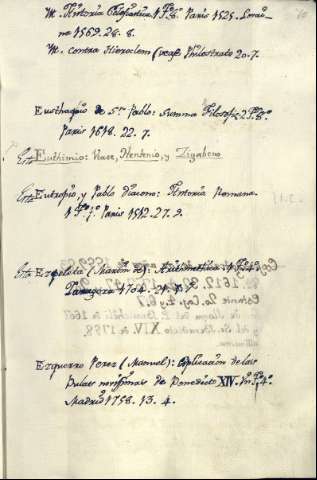 M. Historia Eclesiastica. 1 Tº 8º Paris 1525. Lovai-
ne 1569. 28. 8.
M. contra Hieroclem (vease Philostrato 20. 7.
Eusthaquio de Sn Pablo: Summa Filosofie 2 Tº 8º
Paris 1618. 22. 7.
Euthimio: Vease, Hentenio, y Zigabeno
Eutropio, y Pablo Diacono: Historia Romana.
1 Tº fº Paris 1512. 27. 9.
Ezpeleta (Martin de): Arithmetica 1 Tº 4º
Zaragoza
Ezquerra Perez (Manuel): Esplicacion de las
Bulas novissimas de Benedicto XIV. Un Tº 4º
Madrid 1758. 13. 4.